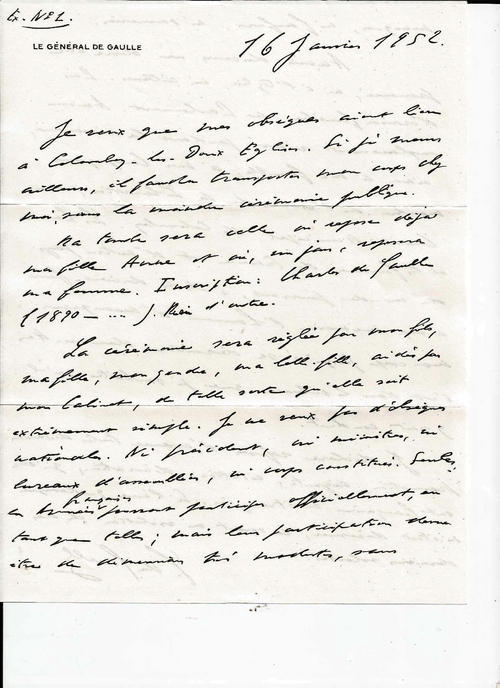 Ex. N° 1.
LE GÉNÉRAL DE GAULLE
16 Janvier 1952.
Je veux que mes obsèques aient lieu
à Colombey-les-Deux Eglises. Si je meurs
ailleurs, il faudra transporter mon corps chez
moi, sans la moindre cérémonie publique.
Ma tombe sera celle où repose déjà
ma fille Anne et où, un jour, reposera
ma femme. Inscription : Charles de Gaulle
(1890 - ... ). Rien d'autre.
La cérémonie sera réglée par mon fils,
ma fille, mon gendre, ma belle-fille, aidés par
mon Cabinet, de telle sorte qu'elle soit
extrêmement simple. Je ne veux pas d'obsèques
nationales. Ni président, ni ministres, ni
bureaux d'assemblées, ni corps constitués. Seules,
françaises
les armées pourront participer officiellement, en
tant que telles ; mais leur participation devra
être de dimensions très modestes, sans